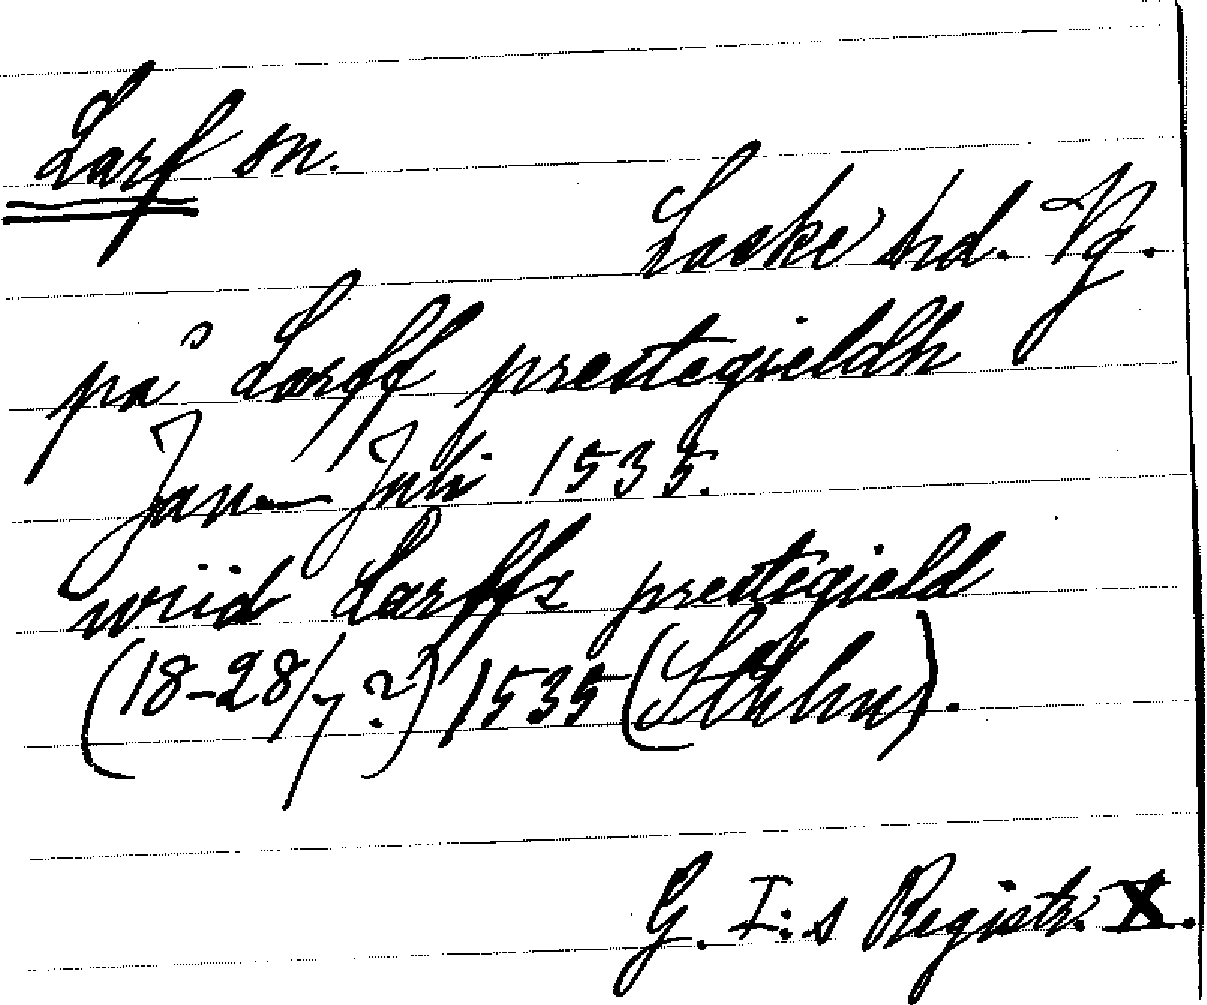 Larf sn.
Laske hd. Vg.
på Larff prestegieldh
Jan–Juli 1535.
wiid Larffz prestegield
(18–28/7 ?) 1535 (Sthlm).
G. I:s Registr. X.